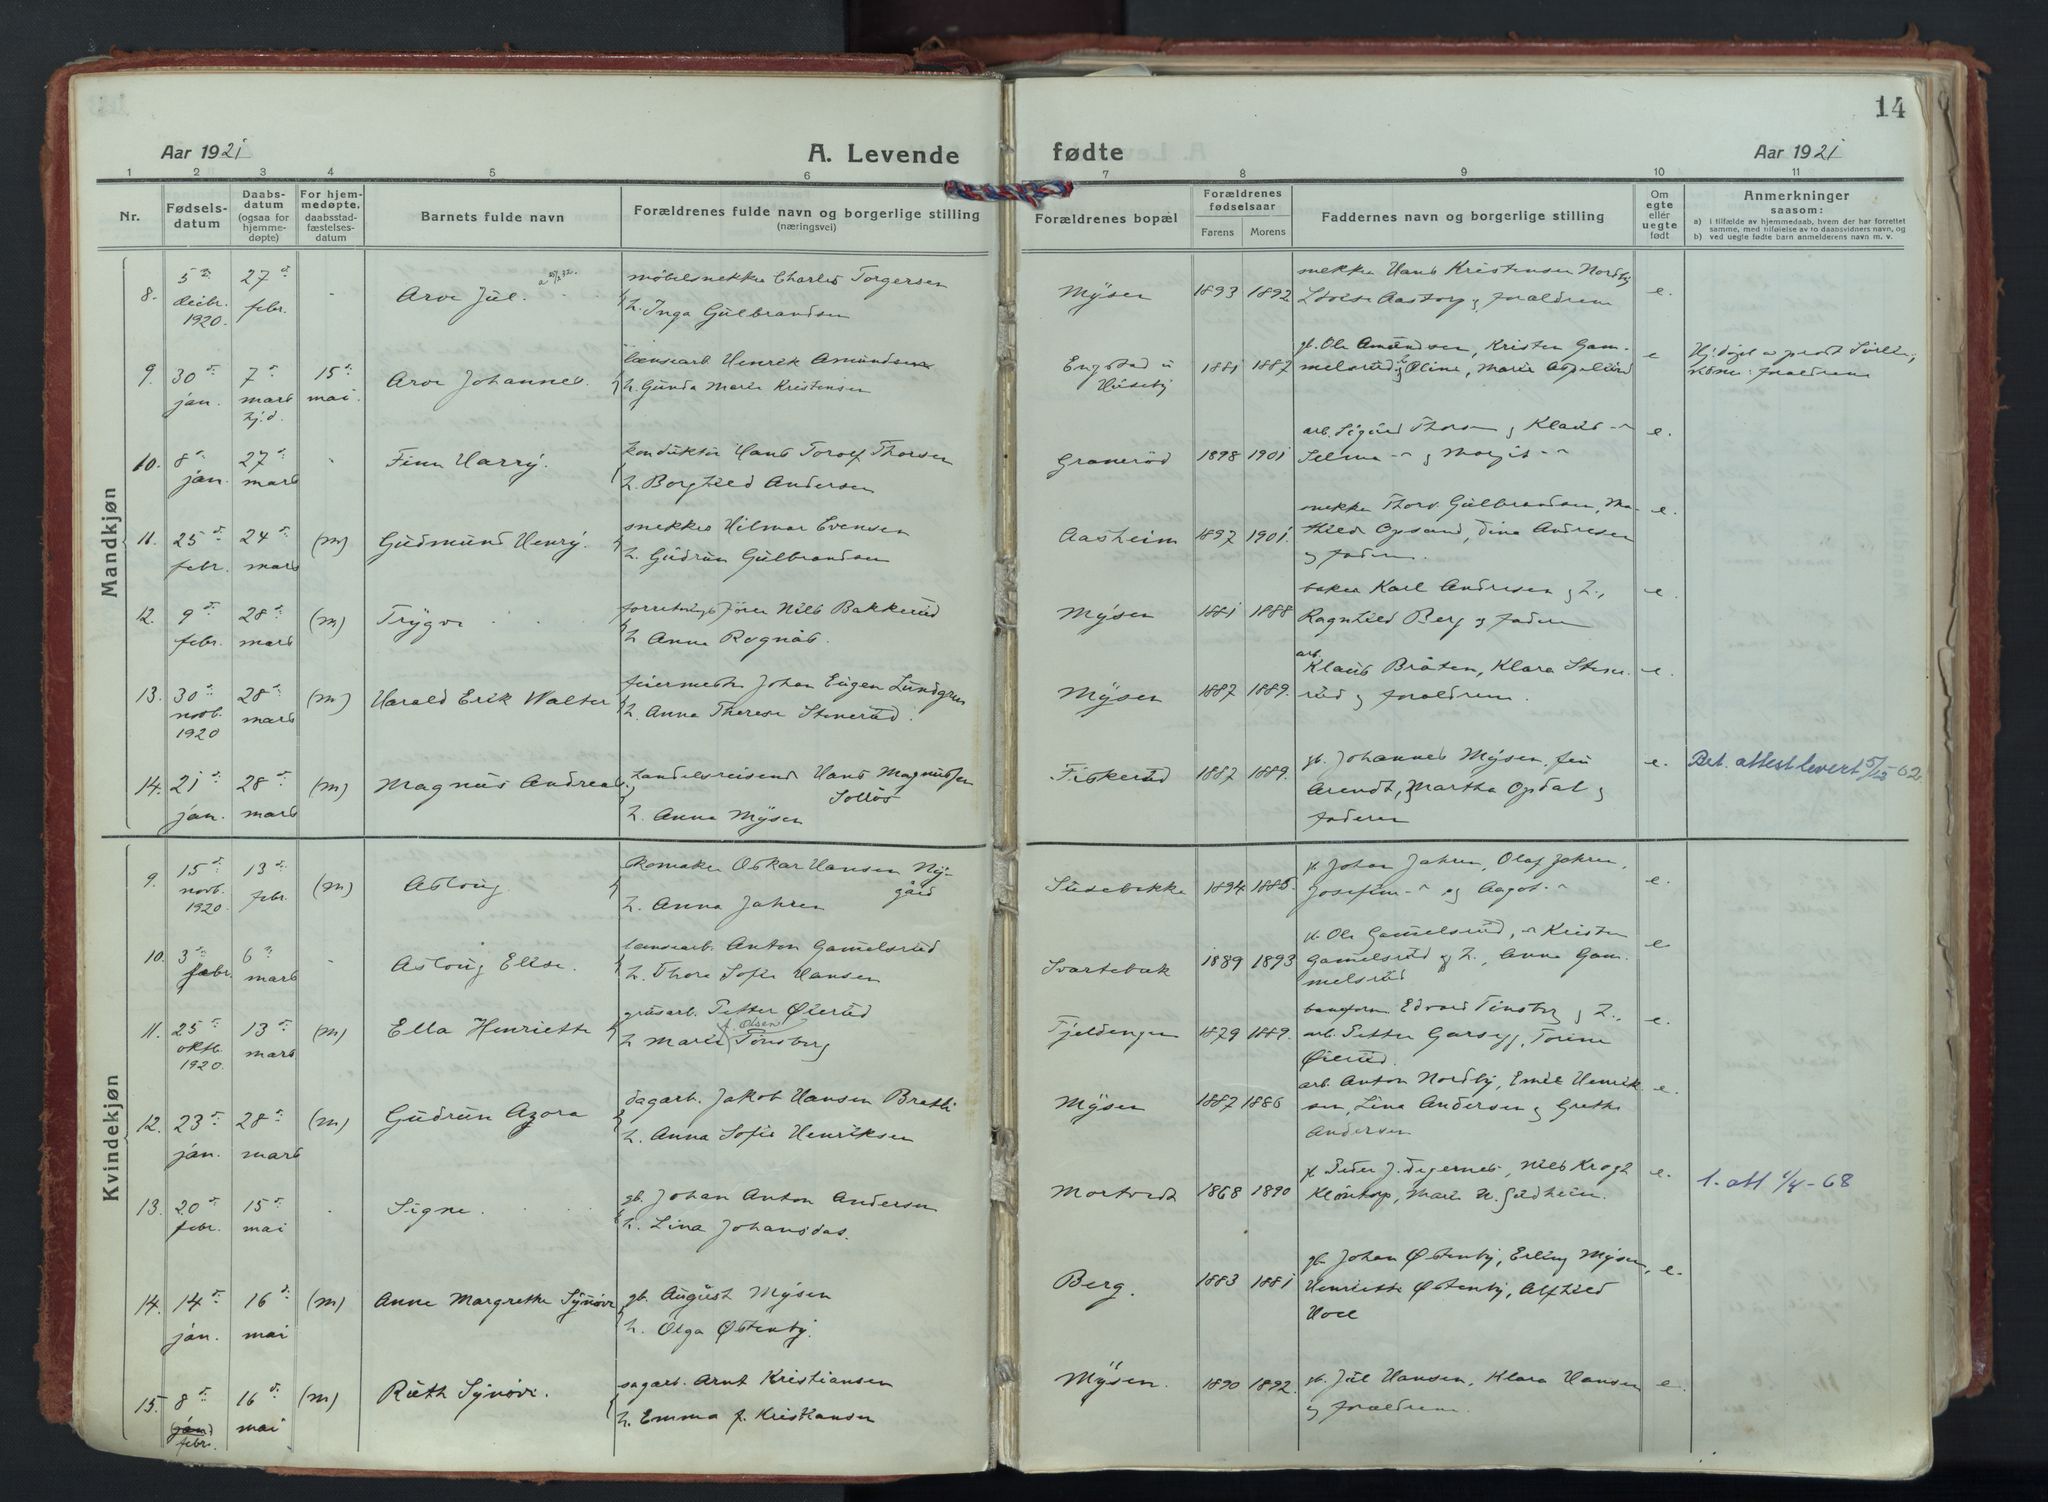 14
Aar 1921 A. Levende fødte Aar 1921
1 2 3 4 5 6 7 8 9 10 11
Nr. Fødsels-datum Daabs-datum (ogsaa for hjemme-døpte) For hjem-medøpte, daabsstad-fæstelses-datum Barnets fulde navn Forældrenes fulde navn og borgerlige stilling (næringsvei) Forældrenes bopæl Forældrenes fødselsaar Farens Morens Faddernes navn og borgerlige stilling Om egte eller uegte født Anmerkninger saasom:
a) i tilfælde av hjemmedaab, hvem der har forrettet samme, med tilføielse av to daabsvidners navn, og
b) ved uegte fødte barn anmelderens navn m. v.
Mandkjøn
8. 5 decbr. 1920. 27 febr. - Arve Jul. møbelsnekker Charles Torgersen
h. Inga Gulbrandsen
Mysen 1893 1892 snekker Hans Kristensen Nordby
Aastorp og forældrene e.
9. 30 jan. 7 mars hj.d. 15 mai. Arve Johannes. lænsearb. Henrik Amundsen
h. Gunda Marie Kristensen
Engstad u Huseby 1881 1887 gb. Ole Amundsen, Kristen Gam-
melsrud og Oline, Marie Aspelund e
Hj.døpt av forældrene
10. 8 jan. 27 mars - Finn Harry. konduktør Hans Torolf Thorsen
h. Borghild Andersen
Granerød 1898 1901 arb. Sigurd Thorsen og Klaus -"-
Selma -"- og Margit -"- e.
11. 25 febr. 24 mars (m) Gudmund Henry. snekker Hilmar Evensen
h. Gudrun Gulbrandsen
Aasheim 1897 1901. snekker Thorv. Gulbrandsen, Ma-
thilde Opsand, Dina Andresen
og faderen. e.
12. 9 febr. 28 mars (m) Trygve forretningsfører Nils Bakkerud
h. Anna Rognås.
Mysen 1881 1888 baker Karl Andresen og h.,
Ragnhild Berg og faderen e.
13. 30 novb. 1920 28 mars (m) Harald Erik Walter feiermester Johan Eugen Lundgren
h. Anna Therese Stenerud.
Mysen 1887 1889. arb. Klaus Bråten, Klara Stene-
rud og forældrene. e.
14. 21 jan. 28 mars (m) Magnus Andreas. handelsreisende Hans Magnussen
Sollös
h. Anna Mysen
Fiskerud 1887 1889. gb. Johannes Mysen,
Arendt, Martha Opdal og
faderen e. Bet. attest levert 5/12-62
Kvindekjøn
9. 15 novb. 1920 13 febr. (m) Aslaug. skomaker Oskar Hansen Ny-
gård
h. Anna Jahren
Susebakke 1894 1885. Johan Jahren, Olaf Jahren,
Josefine -"- og Aagot -"- e.
10. 3 febr. 6 mars - Aslaug Elise. lænsearb. Anton Gamelsrud
h. Thora Sofie Hansen
Svartebæk 1889 1893 Ole Gamelsrud, -"- Kristen
Gamelsrud og h., Anna Gam-
melsrud e
11. 25 oktb. 1920. 13 mars (m) Ella Henriette grusarb. Petter Øierud
h. Marie f. Olsen Tønsberg
Fjeldengen 1879 1889. baneform. Edvard Tønsberg og h.,
arb. Petter Garseg, Torine
Øierud. e.
12. 23 jan. 28 mars (m) Gudrun Azora dagarb. Jakob Hansen Bretti
h. Anna Sofie Henriksen
Mysen 1887 1886 arb. Anton Nordby, Emil Henrik-
sen, Lina Andersen og Grethe
Andersen e.
13. 20 febr. 15 mai . Signe. gb. Johan Anton Andersen
h. Lina Johansdas.
Mortvedt 1868 1890 Peder J. Digernes, Nils Krogh
Kløntorp, Marie N. e. 1. att 1/4-68
14. 14 jan. 16 mai (m) Anne Margrethe Synøve gb. August Mysen
h. Olga Østenby.
Berg. 1883 1881 gb. Johan Østenby, Erling Mysen,
Henriette Østenby, Alfhild
Hoel e.
15. 8 (jan) febr. 16 mai (m) Ruth Synøve. sagarb. Arnt Kristiansen
h. Emma f. Kristiansen
Mysen. 1890 1892. gb. Jul Hansen, Klara Hansen
og forældrene. e.